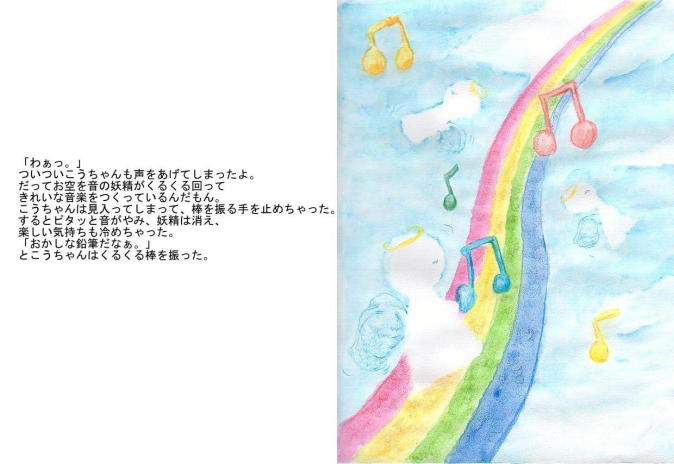 「わぁっ。」
ついついこうちゃんも声をあげてしまったよ。
だってお空を音の妖精がくるくる回って
きれいな音楽をつくっているんだもん。
こうちゃんは見入ってしまって、棒を振る手を止めちゃった。
するとピタッと音がやみ、妖精は消え、
楽しい気持ちも冷めちゃった。
「おかしな鉛筆だなぁ。」
とこうちゃんはくるくる棒を振った。